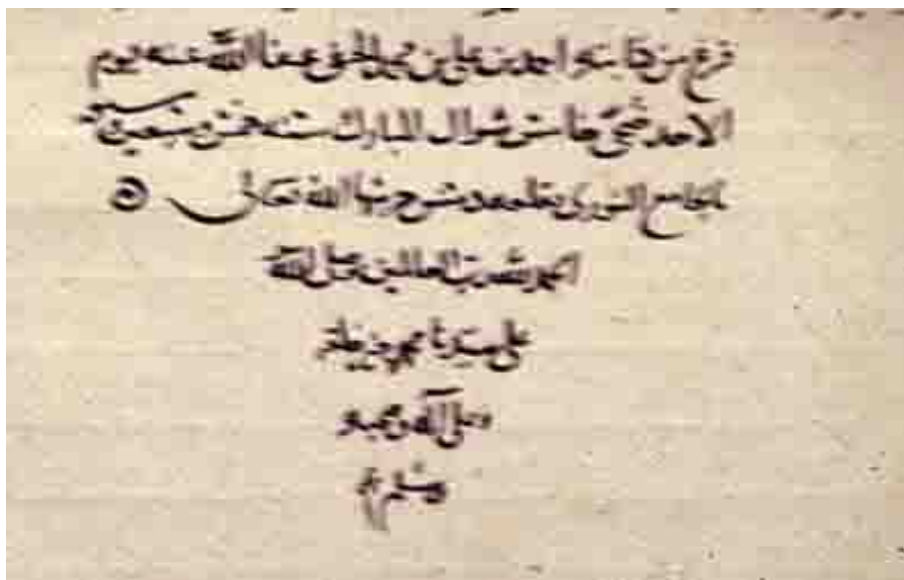 فرغ من كتابته احمد بن علي بن محمد الحنفي عفا الله عنه يوم
الاحد ضحى خامس شوال المبارك سنة خمس وسبعين
بالجامع النوري بقلعة دمشق حرسها الله تعالى
الحمد لله رب العالمين وصلى الله
على سيدنا محمد خير خلقه
وعلى آله وصحبه
وسلم